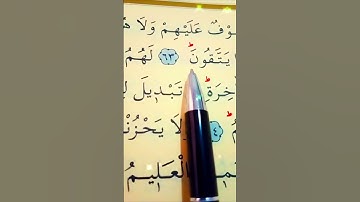 وْفٌ عَلَيْهِمْ وَلَا هُ
يَتَّقُونَ ﴿٦٣﴾ لَهُمُ
خِرَةِ ۚ تَبْدِيلَ لِ
وَلَا يَحْزُنْ
الْعَلِيمُ